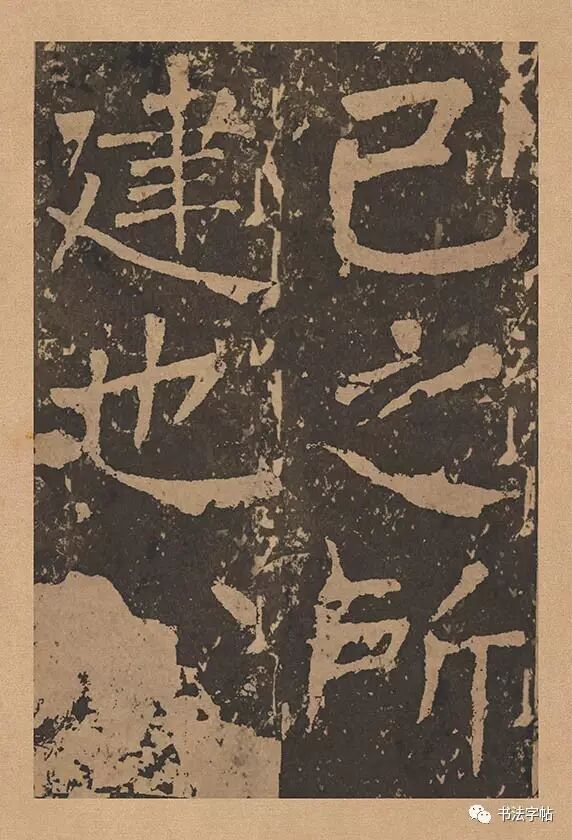 已之所
建也
书法字帖